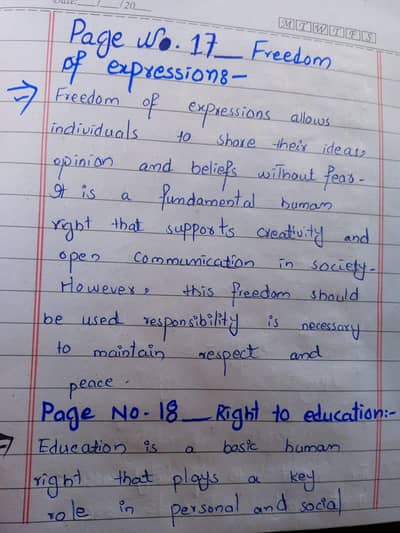 Date:___/___/20___
M T W T F S
Page No. 17 _ Freedom
of expression:-
Freedom of expressions allows
individuals to share their ideas,
opinion and beliefs without fear.
It is a fundamental human
right that supports creativity and
open communication in society.
However, this freedom should
be used responsibility is necessary
to maintain respect and
peace.
Page No-18 _ Right to education:-
Education is a basic human
right that plays a key
role in personal and social